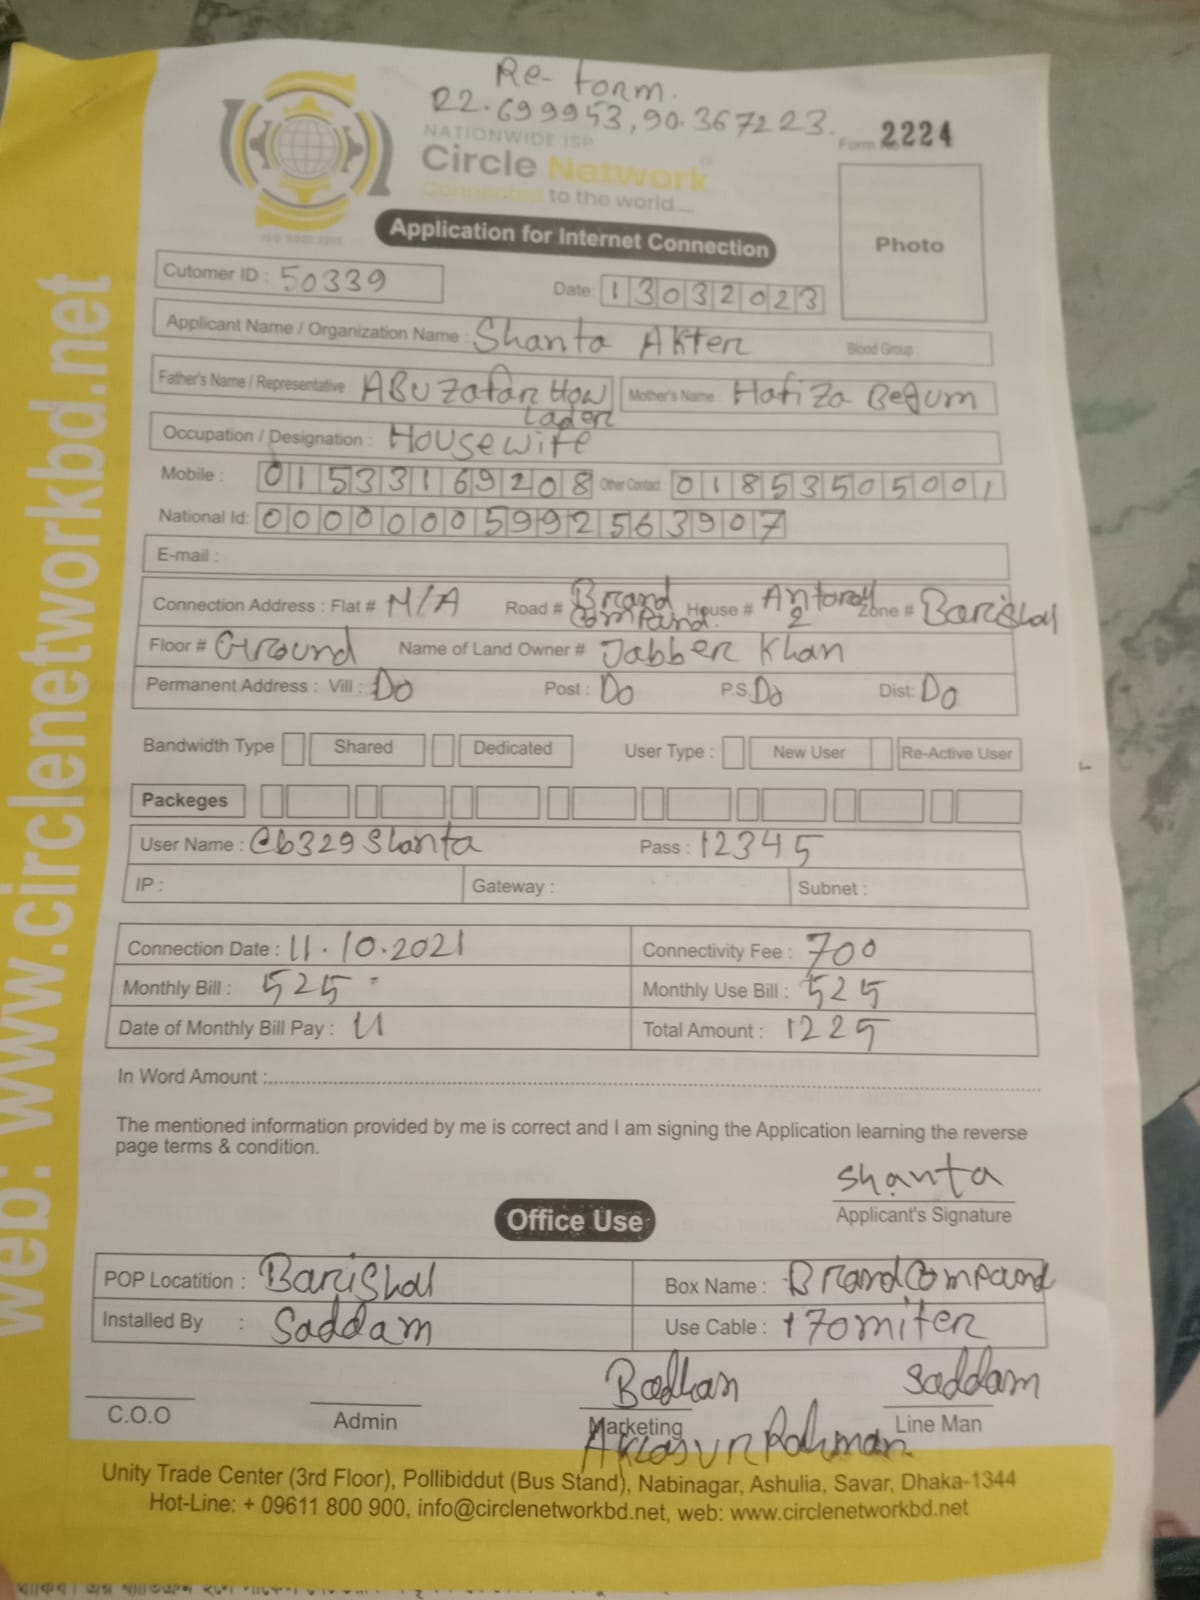 Re-form.
22.699953,90.367223.
NATIONWIDE ISP
Form No 2224
Circle Network
Connected to the world....
Application for Internet Connection
Photo
Cutomer ID : 50339
Date: 13032023
Applicant Name / Organization Name : Shanta Akter Blood Group :
Father's Name / Representative : ABU Zafar How Lader Mother's Name : Hafiza Begum
Occupation / Designation : Housewife
Mobile : 01533169208 Other Contact 01853505001
National Id: 00000005992563907
E-mail :
Connection Address : Flat # N/A Road # Brand Compaund. House # Zone # Barishal
Floor # Ground Name of Land Owner # Jabber Khan
Permanent Address : Vill : Do Post : Do P.S. Do Dist: Do
Bandwidth Type Shared Dedicated User Type : New User Re-Active User
Packeges
User Name : Cb329Shanta Pass : 12345
IP : Gateway : Subnet :
Connection Date : 11.10.2021 Connectivity Fee : 700
Monthly Bill : 525 Monthly Use Bill : 525
Date of Monthly Bill Pay : 11 Total Amount : 1225
In Word Amount :
The mentioned information provided by me is correct and I am signing the Application learning the reverse
page terms & condition.
Shanta
Applicant's Signature
Office Use
POP Locatition : Barishal Box Name : BrandCompaund
Installed By : Saddam Use Cable : 170miter
Badhan Saddam
C.O.O Admin Marketing Line Man
Rahman
Unity Trade Center (3rd Floor), Pollibiddut (Bus Stand), Nabinagar, Ashulia, Savar, Dhaka-1344
Hot-Line: + 09611 800 900, info@circlenetworkbd.net, web: www.circlenetworkbd.net
web: www.circlenetworkbd.net